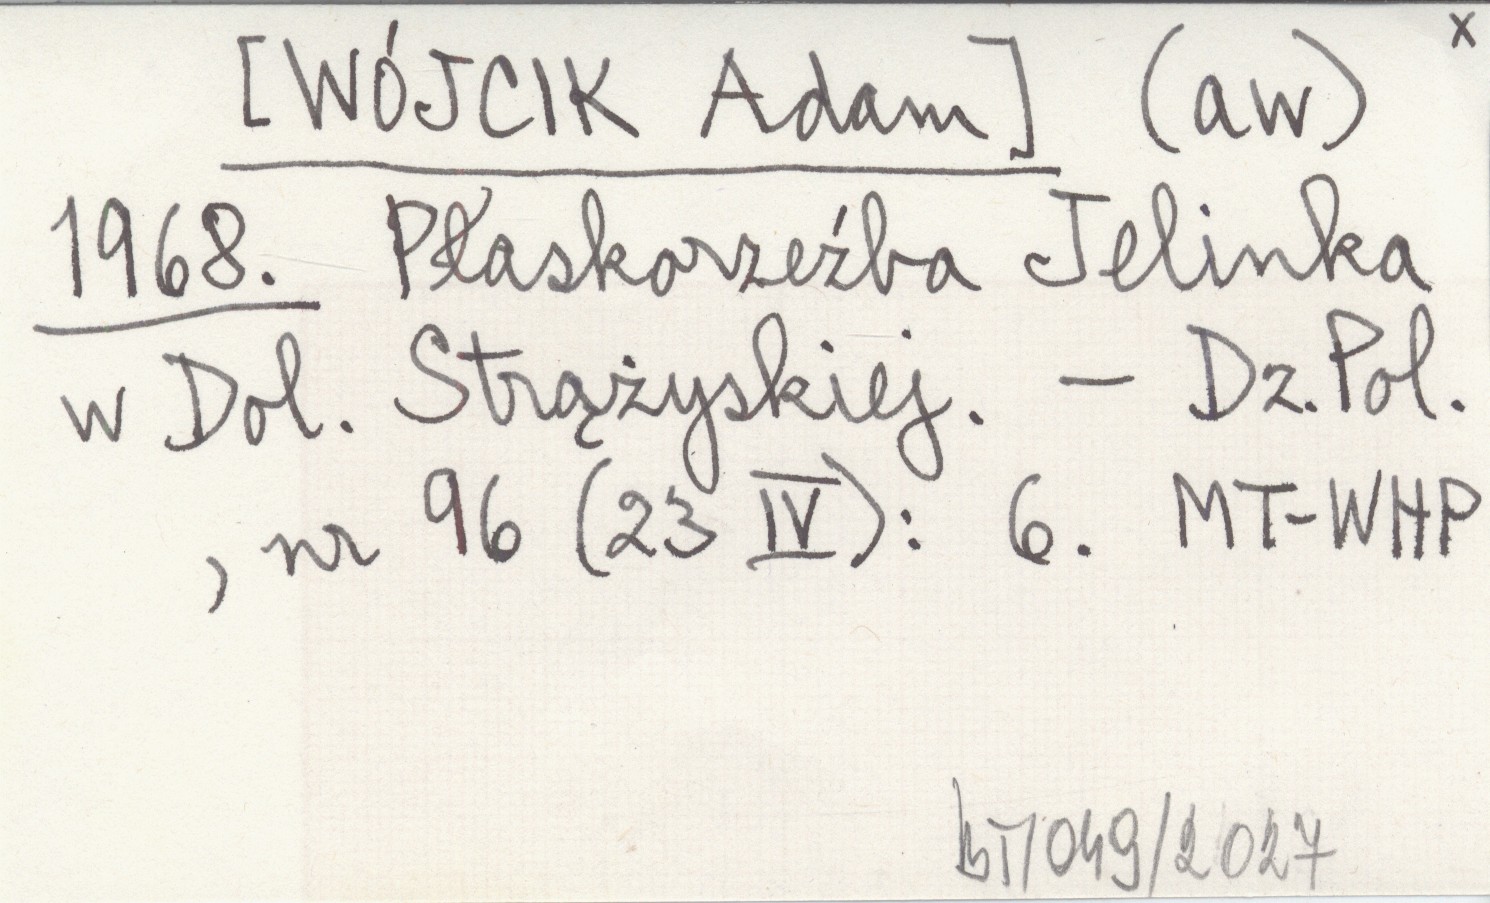 x
[WÓJCIK Adam] (aw)
1968. Płaskorzeźba Jelinka
w Dol. Strążyskiej. – Dz.Pol.
, nr 96 (23 IV): 6. MT-WHP
BT/049/2027